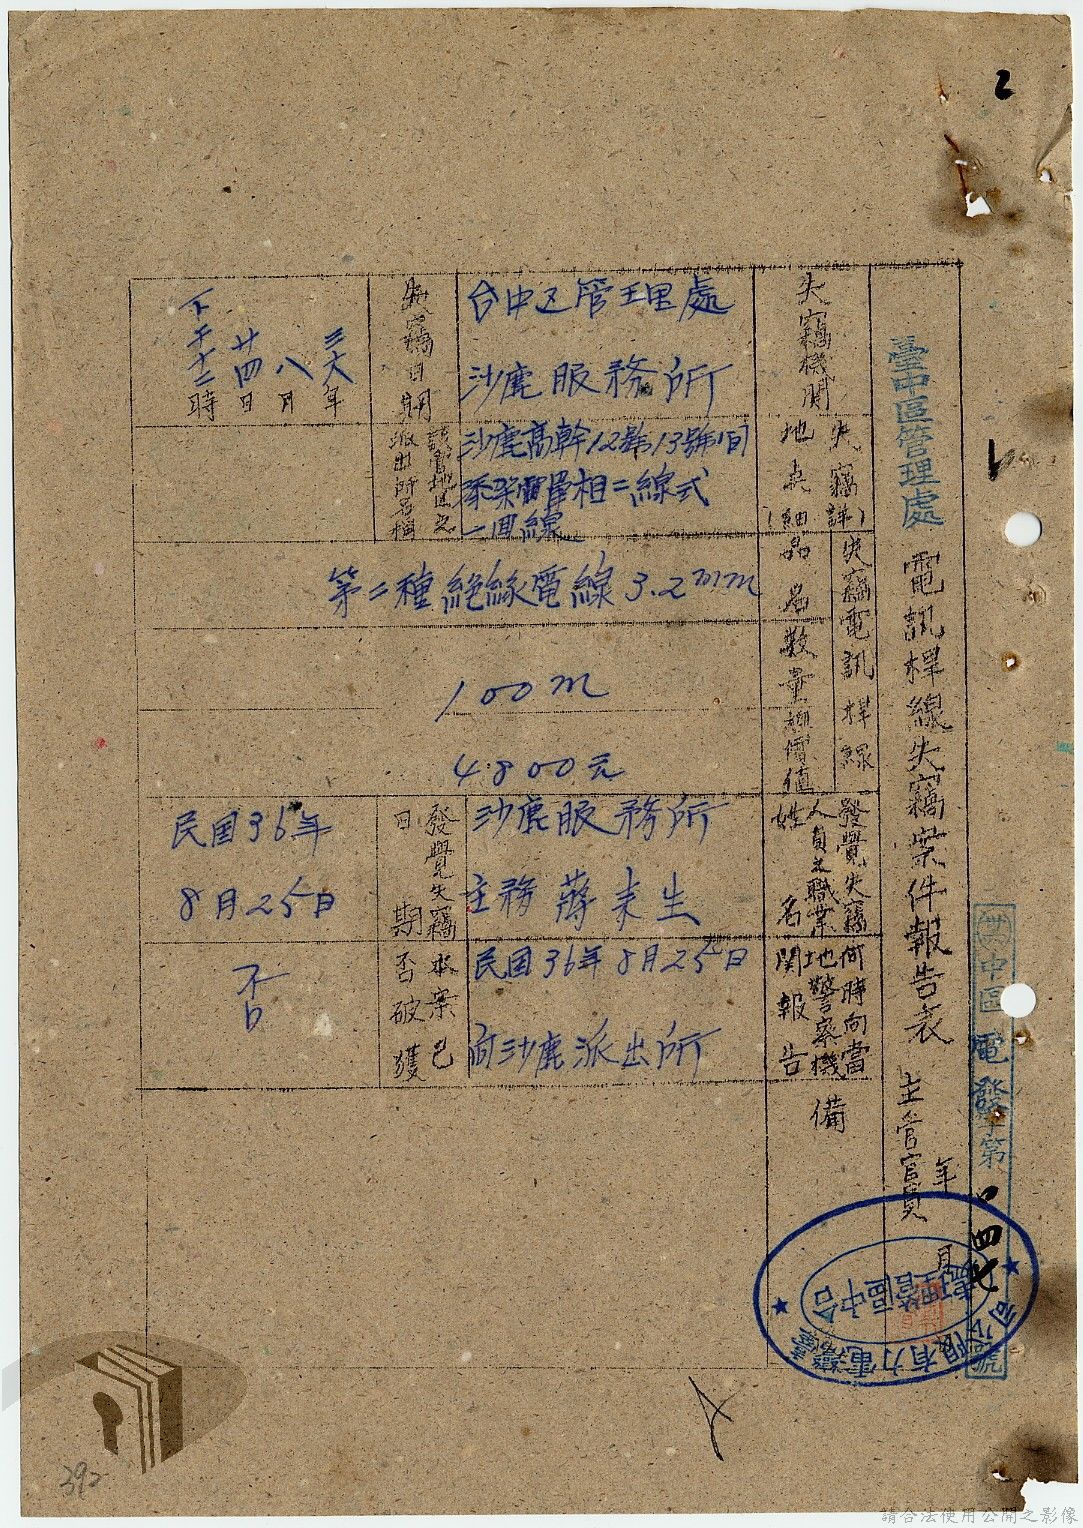 2
臺中區管理處
電訊桿線失竊案件報告表
主管官員
年
月
中區電發字第
四七
號
臺灣電力有限公司
台中區管理處
失竊機關
台中区管理處
沙鹿服務所
失竊日期
三六年
八月
廿四日
下午十二時
失竊詳細
地点
沙鹿高幹12號13號间
單相二線式
一回線
該管地區之
派出所名稱
失竊電訊桿線
品名數量損價值
第二種絕緣電線 3.2mm
100m
4.800元
發覺失竊
人員之職業
姓名
沙鹿服務所
主務
發覺失竊
日期
民国36年
8月25日
何時向當
地警察機
關報告
民国36年8月25日
向沙鹿派出所
本案已
否破獲
否
備
392
請合法使用公開之影像